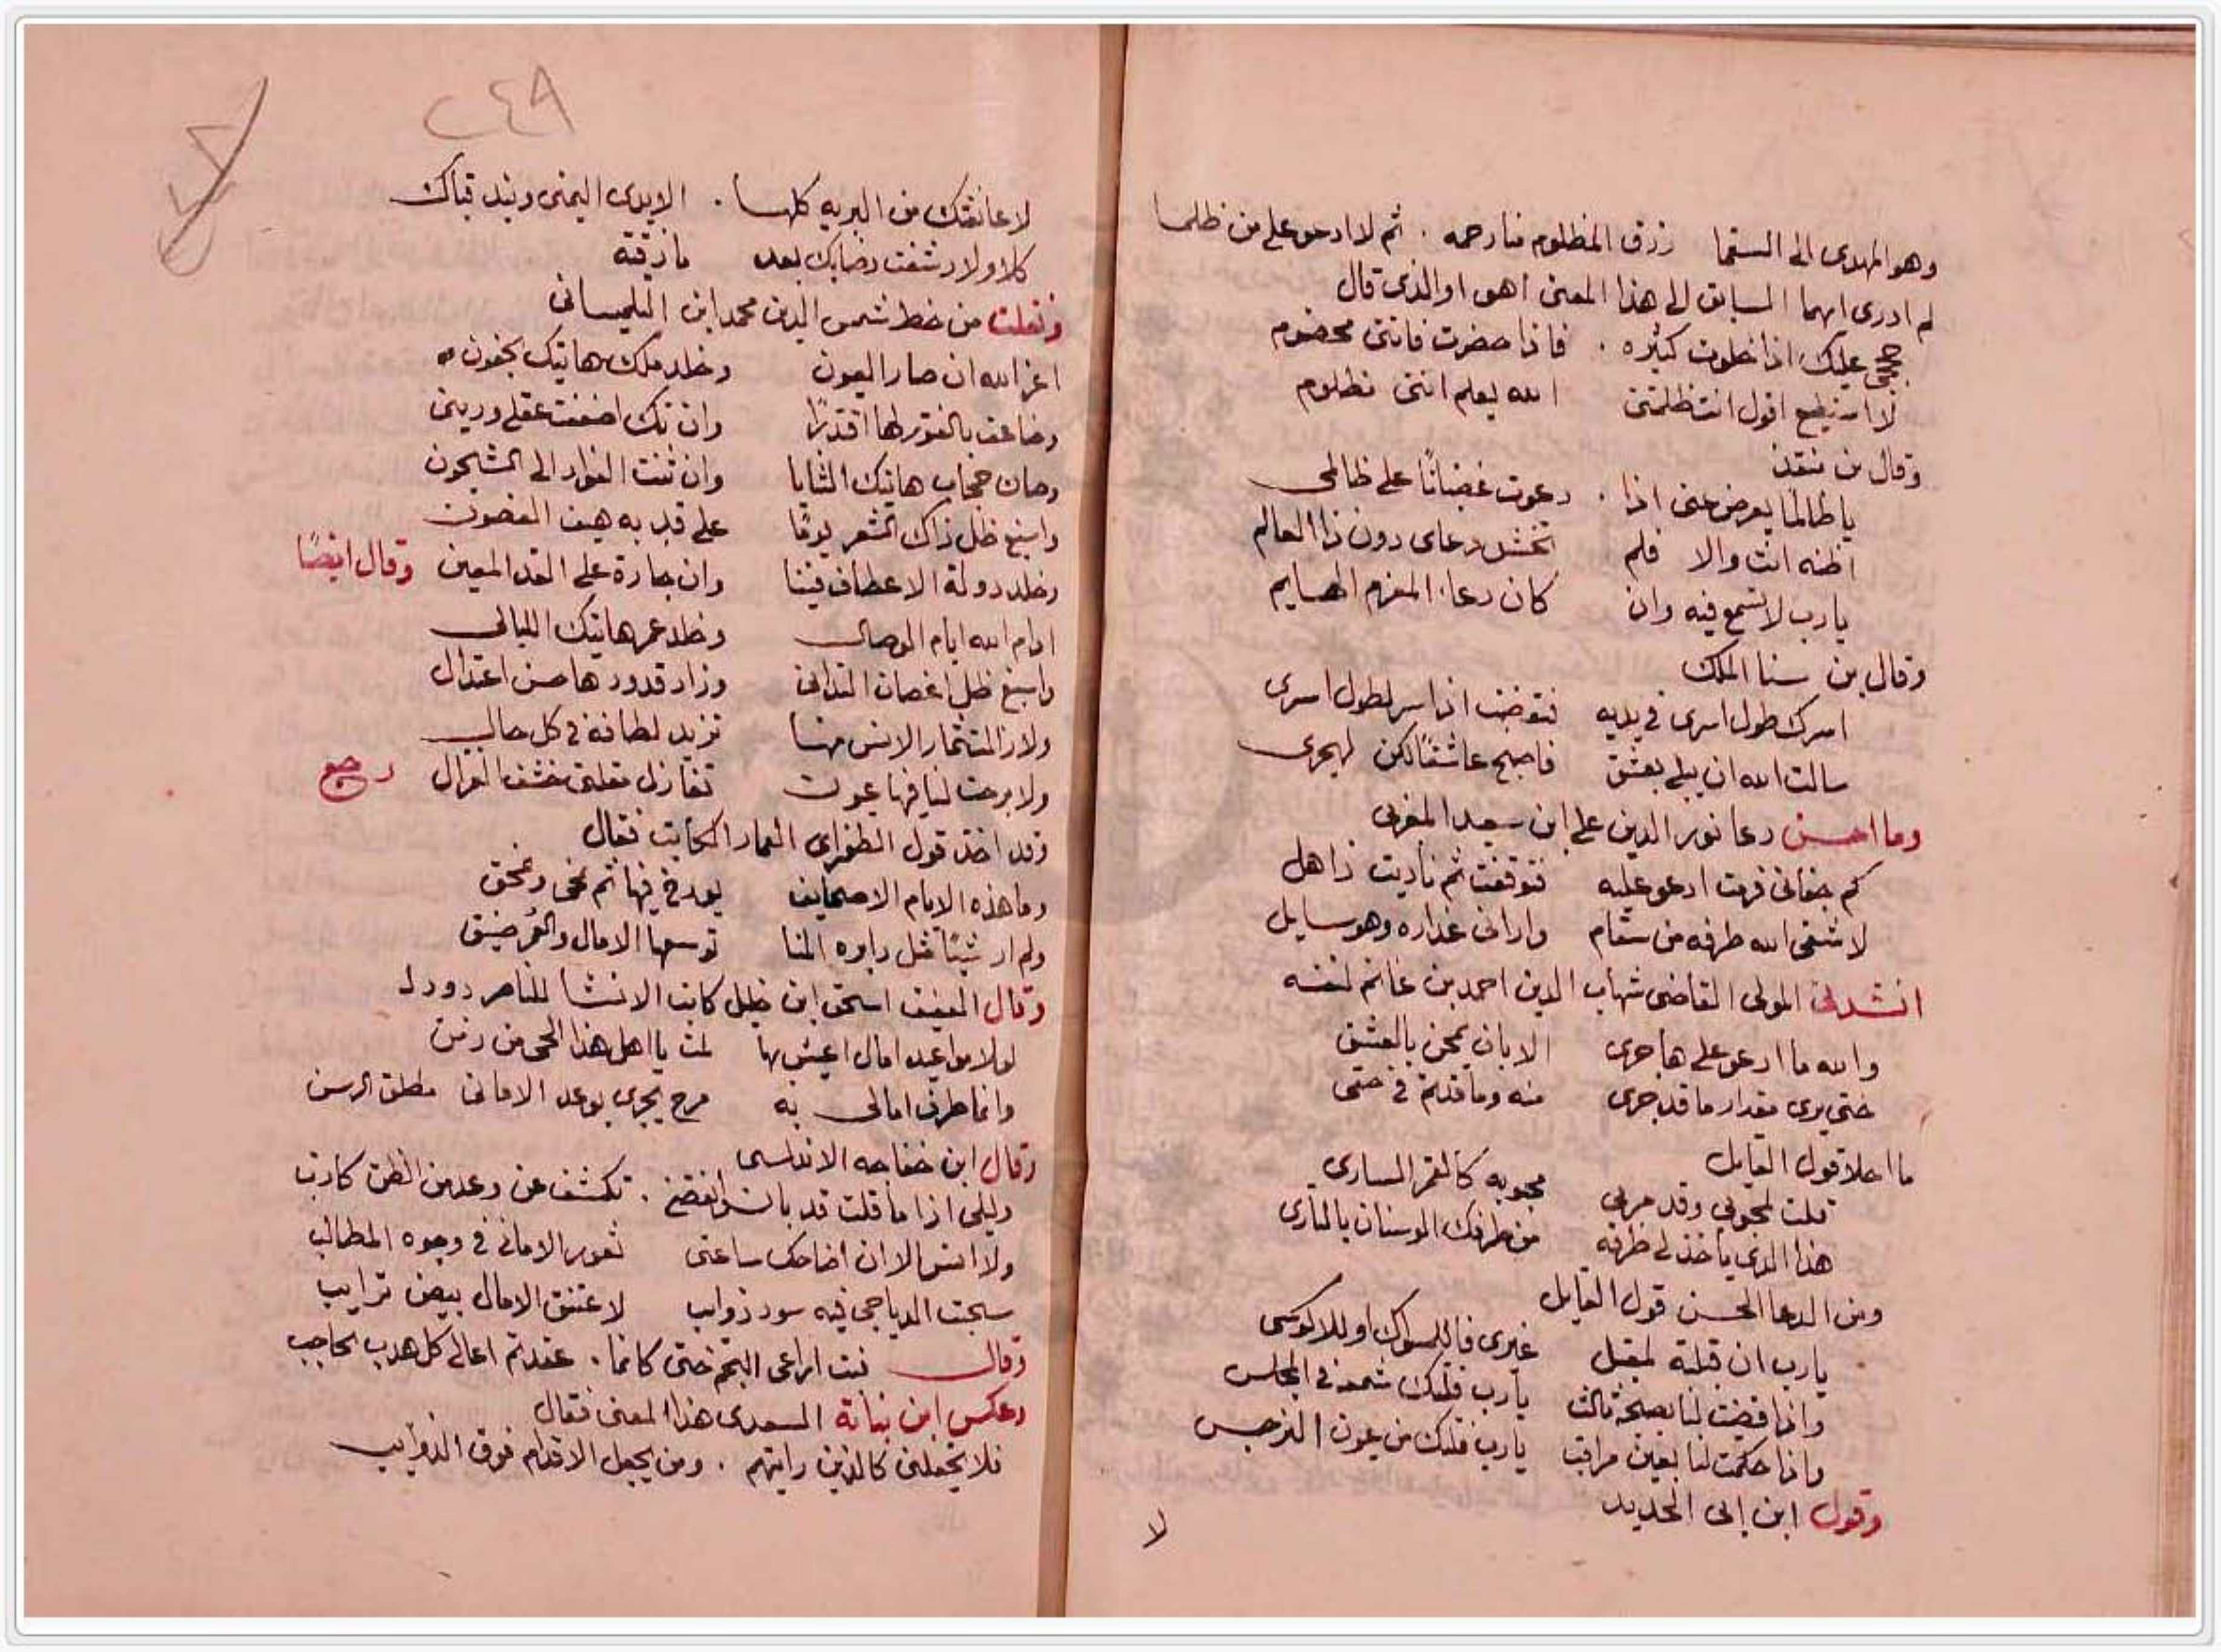 وهو المهدى الى السقما رزق المظلوم منا رحمه . ثم لا ادعو على من ظلما
لم ادرى ايهما السابق الى هذا المعنى اهو او الذى قال
حججى عليك اذا خلوت كثيره . فاذا حضرت فاننى مخصوم
لا استطيع اقول انت ظلمتنى الله يعلم اننى مظلوم
وقال بن منقذ
يا ظالمًا يعرض عنى اذا . دعوت غضبانًا على ظالمى
اظنه انت والا فلم تخش دعاى دون ذا العالم
يارب لا تسمع فيه وان كان دعاء المغرم الهايم
وقال بن سنا الملك
اسرك طول اسرى فى يديه اذا سر لطول اسرى
سالت الله ان يبلى بعشق فاصبح عاشقًا لكن لهجرى
وما احسن دعا نور الدين على ابن سعيد المغربى
كم جفانى فرمت ادعو عليه فتوقفت ثم ناديت ذاهل
لا شفى الله طرفه من سقام وارانى عذاره وهو سايل
انشدنى المولى القاضى شهاب الدين احمد بن غانم لنفسه
والله ما ادعو على هاجرى الا بان يمحن بالعشق
حتى يرى مقدار ما قد جرى منه وما قد تم فى حقى
ما احلا قول القايل
قلت لمحبوبى وقد مر بى محبوبه كالقمر السارى
هذا الذى ياخذ لى طرفه من طرفك الوسنان بالثارى
ومن الدعا الحسن قول القايل
يارب ان قبلة لمقبل غيرى فللمسواك او للاكوسى
واذا قضيت لنا بصحبة ثالث يارب فلتك شمعة فى المجلس
واذا حكمت لنا بعين مراقب يارب فلتك من عيون النرجس
وقول ابن ابى الحديد
لا
٢٤٩
لا عانقتك من البريه كلها . الا يدى اليمنى وبند قباك
كلا ولا رشفت رضابك بعد ما ذقته
ونقلت من خط شمس الدين محمد ابن التلمسانى
اعز الله انصار العيون وخلد ملك هاتيك الجفون
وضاعف بالفتور لها اقتدارًا وان تك اضعفت عقلى ودينى
وصان حجاب هاتيك الثنايا وان ثنت الفواد الى الشجون
واسبغ ظل ذاك الشعر يومًا على قد به هيف الغصون
وخلد دولة الاعطاف فينا وان جارة على القد المعين وقال ايضًا
ادام الله ايام الوصال وخلد عمر هاتيك الليالى
واسبغ ظل اغصان التدانى وزاد قدودها حسن اعتدال
ولا زالت ثمار الانس منها تزيد لطافة فى كل حال
ولا برحت لنا فيها عيون تغازل مقلتى خشف الغزال رجع
وقد اخذ قول الطغراى العماد الكاتب فقال
وما هذه الايام الا صحايف يورخ فيها ثم تمحى وتمحق
ولم ار شيًا مثل دايره المنا توسعها الامال والعُمر ضيق
وقال العفيف اسحق ابن خليل كاتب الانشا للناصر داود
لولا مواعيد امال اعيش بها لمت يا اهل هذا الحى من زمن
وانما طرف امالى به مرح يجرى بوعد الامانى مطلق الرسن
وقال ابن خفاجه الاندلسى
وليلى اذا ما قلت قد باد وانقضى . تكشف عن وعد من الظن كاذب
ولا انس الا ان اضاحك ساعتى ثغور الامانى فى وجوه المطالب
سحبت الدياجى فيه سود ذوايب لاعتنق الامال بيض ترايب
وقال نبت اراعى النجم حتى كانما . عقد تم اعالى كل هدب بحاجب
وعكس ابن نباتة السعدى هذا المعنى فقال
فلا تجعلنى كالذين رايتهم . ومن يجعل الاقدام فوق الذوايب